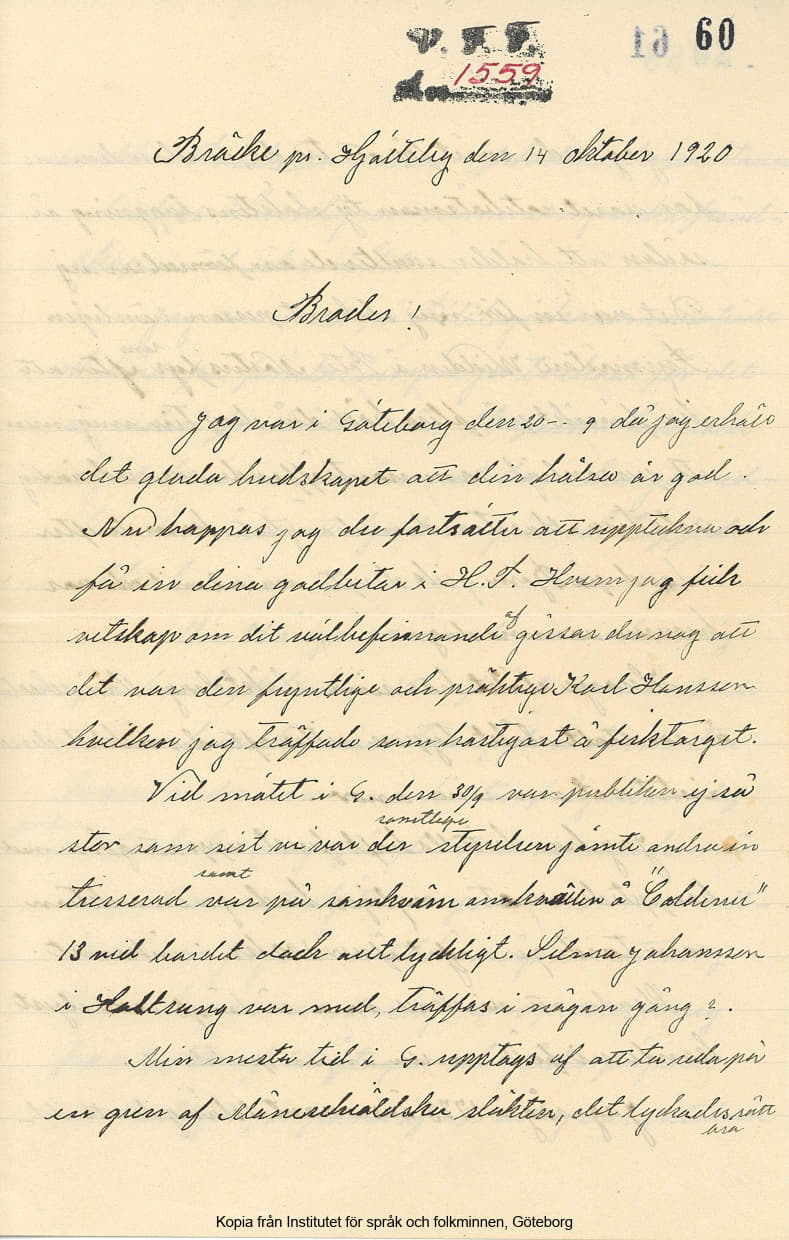 V. F. F.
1559
61 60
Bräcke pr. Hjälteby den 14 oktober 1920
Broder!
Jag var i Göteborg den 20-- 9 då jag erhöll
det glada budskapet att din hälsa är god.
Nu hoppas jag du fortsätter att uppteckna och
få in dina godbitar i H.T. Hvem jag fick
vetskap om dit välbefinnande af gissar du nog att
det var den fryntlige och präktige Karl Hansson
hvilken jag träffade som hastigast å fisktorget.
Vid mötet i G. den 30/9 var publiken ej så
stor som sist vi var der samtlige styrelsen jämte andra in
tresserad samt var på samkväm om kvällen å
13 vid bordet dock allt lyckligt. Selma Johansson
i var med, träffas i någon gång?.
Min mesta tid i G. upptogs af att ta reda på
en gren af Måneschöldska släkten, det lyckades rätt
bra
Kopia från Institutet för språk och folkminnen, Göteborg